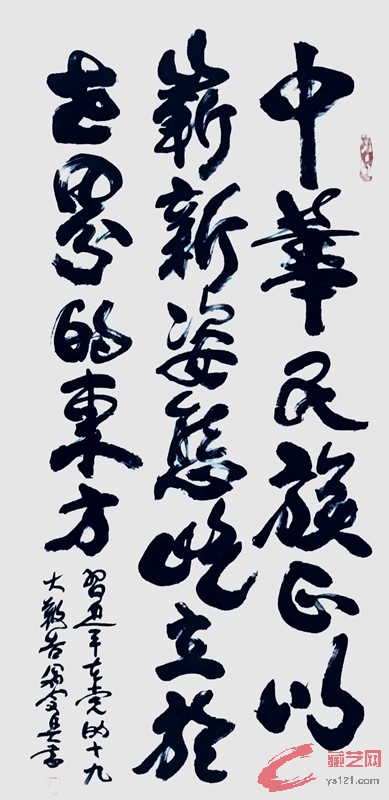 中華民族正以
嶄新姿態屹立於
世界的東方
習近平在党的十九
大報告
藏艺网
ys121.com